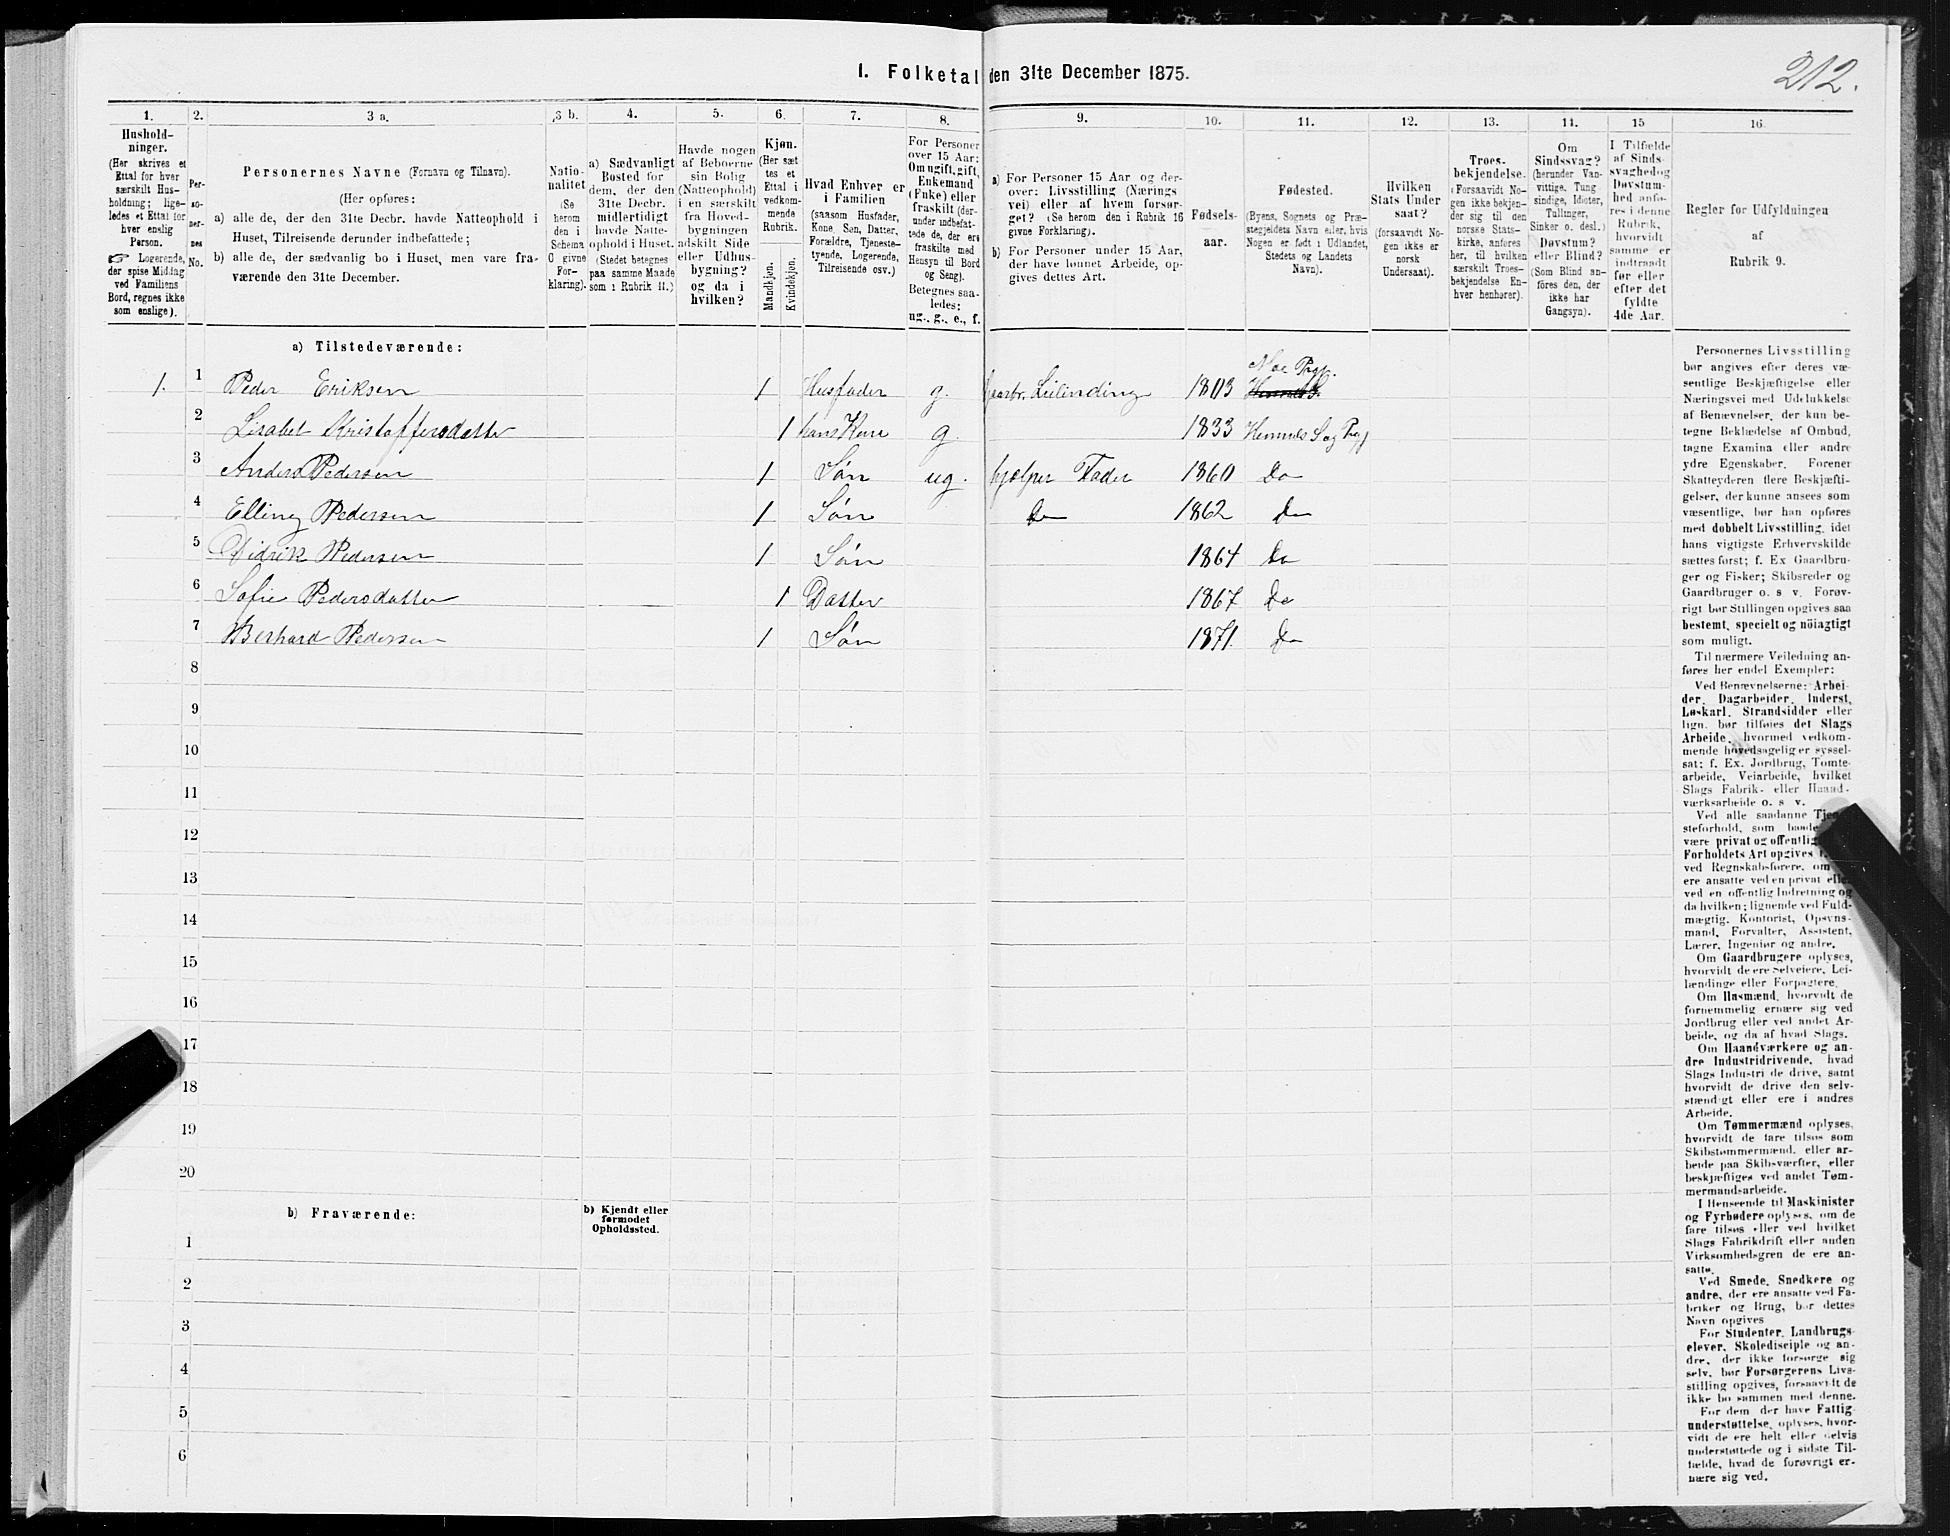 212.
I. Folketal den 31te December 1875.
1.
Hushold-
ninger.
(Her skrives et
Ettal for hver
særskilt Hus-
holdning; lige-
ledes et Ettal for
hver enslig
Person.
☞ Logerende,
der spise Middag
ved Familiens
Bord, regnes ikke
som enslige).
2.
Per-
so-
ner-
nes
No.
3 a.
Personernes Navne (Fornavn og Tilnavn).
(Her opføres:
a) alle de, der den 31te Decbr. havde Natteophold i
Huset, Tilreisende derunder indbefattede;
b) alle de, der sædvanlig bo i Huset, men vare fra-
værende den 31te December.
3 b.
Natio-
nalitet
(Se
herom
den i
Schema
C givne
For-
klaring).
4.
a) Sædvanligt
Bosted for
dem, der den
31te Decbr.
midlertidigt
havde Natte-
ophold i Huset.
(Stedet betegnes
paa samme Maade
som i Rubrik 11.)
5.
Havde nogen
af Beboerne
sin Bolig
(Natteophold)
i en særskilt
fra Hoved-
bygningen
adskilt Side
eller Udhus-
bygning?
og da i
hvilken?
6.
Kjøn.
(Her sæt
tes et
Ettal i
vedkom-
mende
Rubrik.
Mandkjøn.
Kvindekjøn.
7.
Hvad Enhver er
i Familien
(saasom Husfader,
Kone Søn, Datter,
Forældre, Tjeneste-
tyende, Logerende,
Tilreisende osv.)
8.
For Personer
over 15 Aar:
Om ugift, gift,
Enkemand
(Enke) eller
fraskilt (der-
under indbefat-
tede de, der ere
fraskilte med
Hensyn til Bord
og Seng).
Betegnes saa-
ledes:
ug., g., e., f.
9.
a) For Personer 15 Aar og der-
over: Livsstilling (Nærings
vei) eller af hvem forsør-
get? (Se herom den i Rubrik 16
givne Forklaring).
b) For Personer under 15 Aar,
der have lønnet Arbeide, op-
gives dettes Art.
10.
Fødsels-
aar.
11.
Fødested.
(Byens, Sognets og Præ-
stegjeldets Navn eller, hvis
Nogen er født i Udlandet,
Stedets og Landets
Navn).
12.
Hvilken
Stats Under
saat?
(forsaavidt No-
gen ikke er
norsk
Undersaat).
13.
Troes-
bekjendelse.
(Forsaavidt No-
gen ikke bekjen-
der sig til den
norske Stats-
kirke, anføres
her, til hvilken
særskilt Troes-
bekjendelse En-
hver henhører).
14.
Om
Sindssvag?
(herunder Van-
vittige, Tung
sindige, Idioter,
Tullinger,
Sinker o. desl.)
Døvstum?
eller Blind?
(Som Blind an-
føres den, der
ikke har
Gangsyn).
15
I Tilfælde
af Sinds-
svaghed og
Døvstum-
hed anfø-
res i denne
Rubrik,
hvorvidt
samme er
indtraadt
før eller
efter det
fyldte
4de Aar.
16.
Regler for Udfyldningen
af
Rubrik 9.
a) Tilstedeværende:
1. 1 Peder Eriksen 1 Husfader g. Gaardbr. Leilending 1803 Noe Prgt.
2 Lisabet Kristoffersdatter 1 hans Kone g. 1833 Hemnes S og Prgj
3 Anders Pedersen 1 Søn ug. hjælper Fader 1860 Do
4 Elling Pedersen 1 Søn Do 1862 Do
5 Didrik Pedersen 1 Søn 1864 Do
6 Sofie Pedersdatter 1 Datter 1867 Do
7 Berhard Pedersen 1 Søn 1871. Do
8
9
10
11
12
13
14
15
16
17
18
19
20
b) Fraværende:
b) Kjendt eller
formodet
Opholdssted.
1
2
3
4
5
6
Personernes Livsstilling
bør angives efter deres væ-
sentlige Beskjæftigelse eller
Næringsvei med Udelukkelse
af Benævnelser, der kun be-
tegne Beklædelse af Ombud,
tagne Examina eller andre
ydre Egenskaber. Forener
Skatteyderen flere Beskjæfti-
gelser, der kunne ansees som
væsentlige, bør han opføres
med dobbelt Livsstilling, idet
hans vigtigste Erhvervskilde
sættes først; f. Ex Gaardbru-
ger og Fisker; Skibsreder og
Gaardbruger o. s v. Forøv-
rigt bør Stillingen opgives saa
bestemt, specielt og nöiagtigt
som muligt.
Til nærmere Veiledning an-
føres her endel Exempler:
Ved Benævnelserne: Arbei-
der, Dagarbeider, Inderst,
Løskarl, Strandsidder eller
lign. bør tilføies det Slags
Arbeide, hvormed vedkom-
mende hovedsagelig er syssel-
sat; f. Ex. Jordbrug, Tomte-
arbeide, Veiarbeide, hvilket
Slags Fabrik- eller Haand-
værksarbeide o. s v.
Ved alle saadanne Tjene-
steforhold, som baade
være privat og offentlig
Forholdets Art opgives
ved Regnskabsførere, om
ere ansatte ved en privat eller
ved en offentlig Indretning og
da hvilken; lignende ved Fuld-
mægtig, Kontorist, Opsyns-
mand, Forvalter, Assistent,
Lærer, Ingeniør og andre.
Om Gaardbrugere oplyses,
hvorvidt de ere Selveiere, Lei-
lændinge eller Forpagtere.
Om Husmænd, hvorvidt de
fornemmelig ernære sig ved
Jordbrug eller ved andet Ar-
beide, og da af hvad Slags.
Om Haandværkere og an-
dre Industridrivende, hvad
Slags Industri de drive, samt
hvorvidt de drive den selv-
stændigt eller ere i andres
Arbeide.
Om Tømmermænd oplyses,
hvorvidt de fare tilsøs som
Skibstømmermænd, eller ar-
beide paa Skibsværfter, eller
beskjæftiges ved andet Tøm-
mermandsarbeide.
I Henseende til Maskinister
og Fyrbødere oplyses, om de
fare tilsøs eller ved hvilket
Slags Fabrikdrift eller anden
Virksomhedsgren de ere an-
satte.
Ved Smede, Snedkere og
andre, der ere ansatte ved Fa-
briker og Brug, bør dettes
Navn opgives
For Studenter, Landbrugs-
elever, Skoledisciple og an-
dre, der ikke forsørge sig
selv, bør Forsørgerens Livs-
stilling opgives, forsaavidt de
ikke bo sammen med denne.
For dem der have Fattig-
understøttelse, oplyses, hvor-
vidt de ere helt eller delvis
understøttede og i sidste Til-
fælde, hvad de forøvrigt er-
nære sig ved.